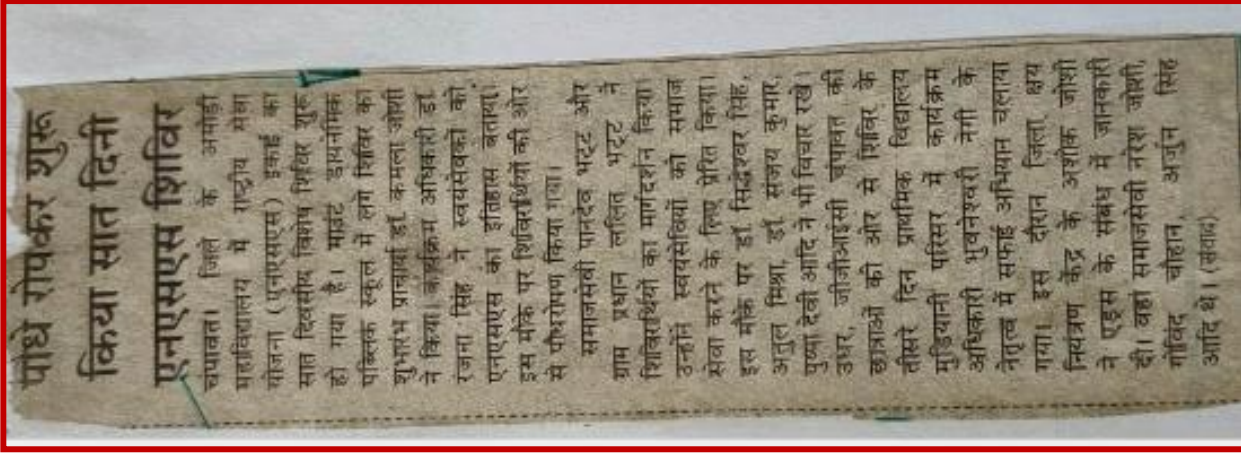 पौधे रोपकर शुरू
किया सात दिनी
एनएसएस शिविर
चंपावत। जिले के अमोड़ी
महाविद्यालय में राष्ट्रीय सेवा
योजना (एनएसएस) इकाई का
सात दिवसीय विशेष शिविर शुरू
हो गया है। माइंट डायनेमिक
पब्लिक स्कूल में लगे शिविर का
शुभारंभ प्राचार्या डॉ. कमला जोशी
ने किया। कार्यक्रम अधिकारी डॉ.
रंजना सिंह ने स्वयंसेवकों को
एनएसएस का इतिहास बताया।
इस मौके पर शिविरार्थियों की ओर
से पौधरोपण किया गया।
समाजसेवी पानदेव भट्ट और
ग्राम प्रधान ललित भट्ट ने
शिविरार्थियों का मार्गदर्शन किया।
उन्होंने स्वयंसेवियों को समाज
सेवा करने के लिए प्रेरित किया।
इस मौके पर डॉ. सिद्धेश्वर सिंह,
अतुल मिश्रा, डॉ. संजय कुमार,
पुष्पा देवी आदि ने भी विचार रखे।
उधर, जीजीआईसी चंपावत की
छात्राओं की ओर से शिविर के
तीसरे दिन प्राथमिक विद्यालय
मुड़ियानी परिसर में कार्यक्रम
अधिकारी भुवनेश्वरी नेगी के
नेतृत्व में सफाई अभियान चलाया
गया। इस दौरान जिला क्षय
नियंत्रण केंद्र के अशोक जोशी
ने एड्स के संबंध में जानकारी
दी। वहां समाजसेवी नरेश जोशी,
गोविंद चौहान, अर्जुन सिंह
आदि थे। (संवाद)